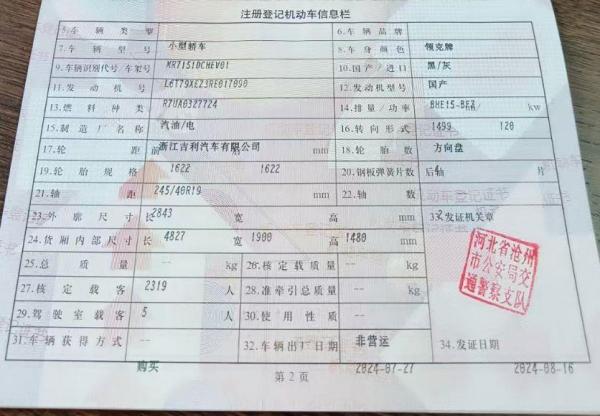 注册登记机动车信息栏
5.车辆类型 6.车辆品牌
7.车辆型号 小型轿车 8.车身颜色 领克牌
9.车辆识别代号/车架号 MR7151DCHEV01 10.国产/进口 黑/灰
11.发动机号 L6T79XEZ3RE017090 12.发动机型号 国产
13.燃料种类 R7UA0327724 14.排量/功率 BHE15-BFZ ml/ kw
15.制造厂名称 汽油/电 16.转向形式 1499 120
17.轮距 前 浙江吉利汽车有限公司 后 mm 18.轮胎数 方向盘
19.轮胎规格 1622 1622 20.钢板弹簧片数 后 4 片
21.轴距 245/40R19 mm 22.轴数
23.外廓尺寸 长 2843 宽 高 mm 33.发证机关章
24.货厢内部尺寸 长 4827 宽 1900 高 1480 mm
25.总质量 -- kg 26.核定载质量 -- kg
27.核定载客 2319 人 28.准牵引总质量 -- kg
29.驾驶室载客 5 人 30.使用性质 --
31.车辆获得方式 -- 32.车辆出厂日期 非营运 34.发证日期
购买 2024-07-27 2024-08-16
第2页
河北省沧州
市公安局交
通警察支队